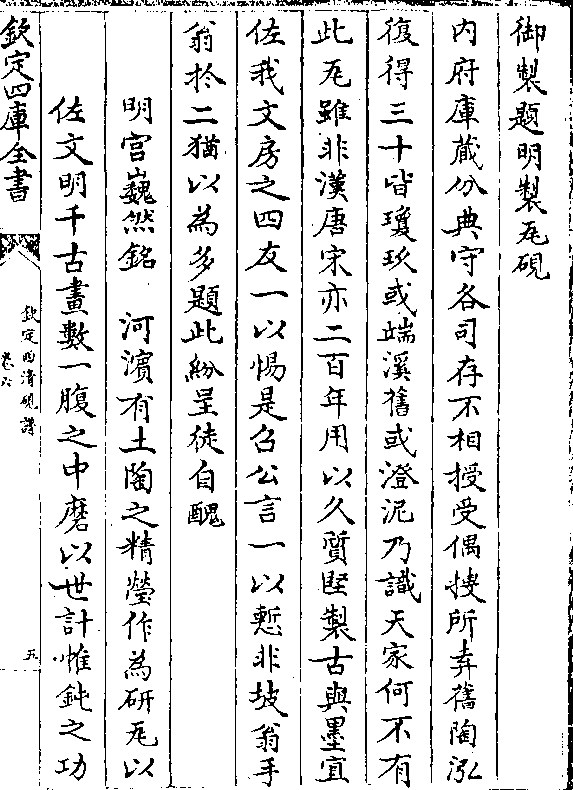 御製題明製瓦硯
内府庫藏分典守各司存不相授受偶搜所弆舊陶泓
復得三十皆瓊玖或端溪舊或澄泥乃識天家何不有
此瓦雖非漢唐宋亦二百年用以久質堅製古與墨宜
佐我文房之四友一以惕是召公言一以慙非坡翁手
翁扵二猶以為多題此紛呈徒自醜
明宫巍然銘　河濱有土陶之精瑩作為研瓦以
佐文明千古畫數一腹之中磨以世計惟鈍之功
欽定四庫全書
欽定西清硯譜
卷六
五